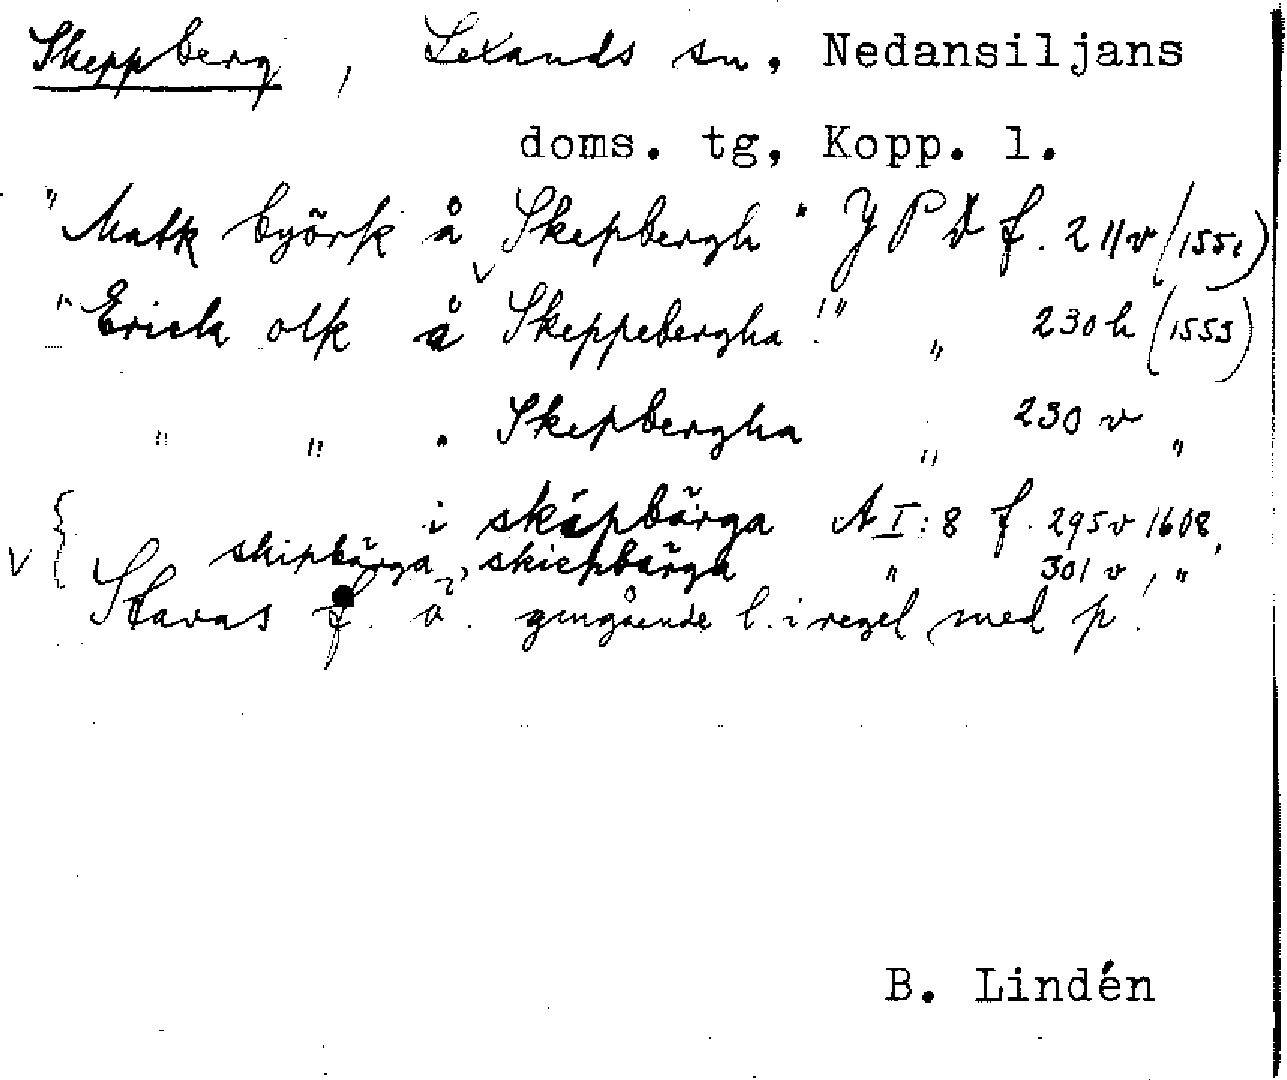 Skeppberg, Leksands sn. Nedansiljans
doms. tg, Kopp. l.
"Matk byörk å Skepbergh" J P D f. 211v (1551)
"Erick olk å Skeppebergha!" " 230 h (1553)
" " . Skepbergha " 230 v "
i skäpbärga A I:8 f. 295v 1608,
skipbärga, skiepbärga " 301 v, "
Stavas f. ö. gmgående l. i regel med p!
B. Lindén